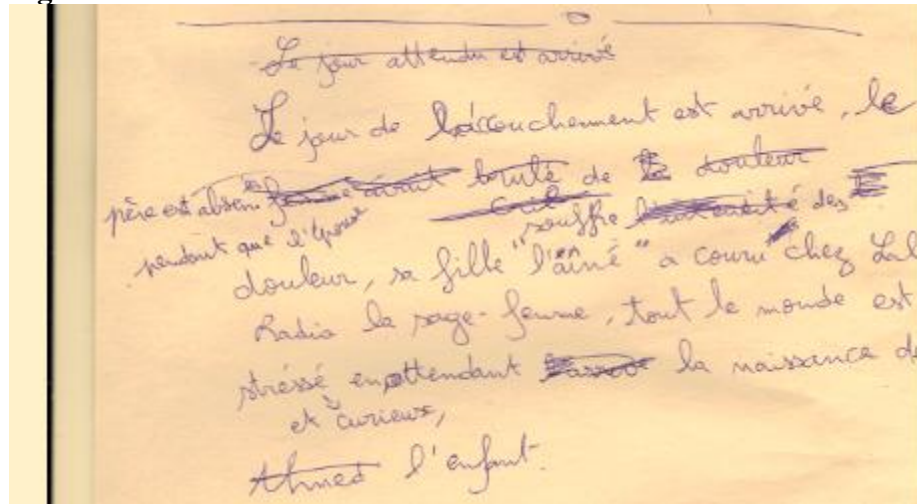 Le jour attendu est arrivé
Le jour de l'accouchement est arrivé, le
père est absent femme avait brulé de la douleur
pendant que l'épouse souffre l'intensité des
douleur, sa fille "l'ainé" a couru chez Lal
Radia la sage-femme, tout le monde est
stréssé en attendant la naissance de
et curieux,
Ahmed l'enfant.